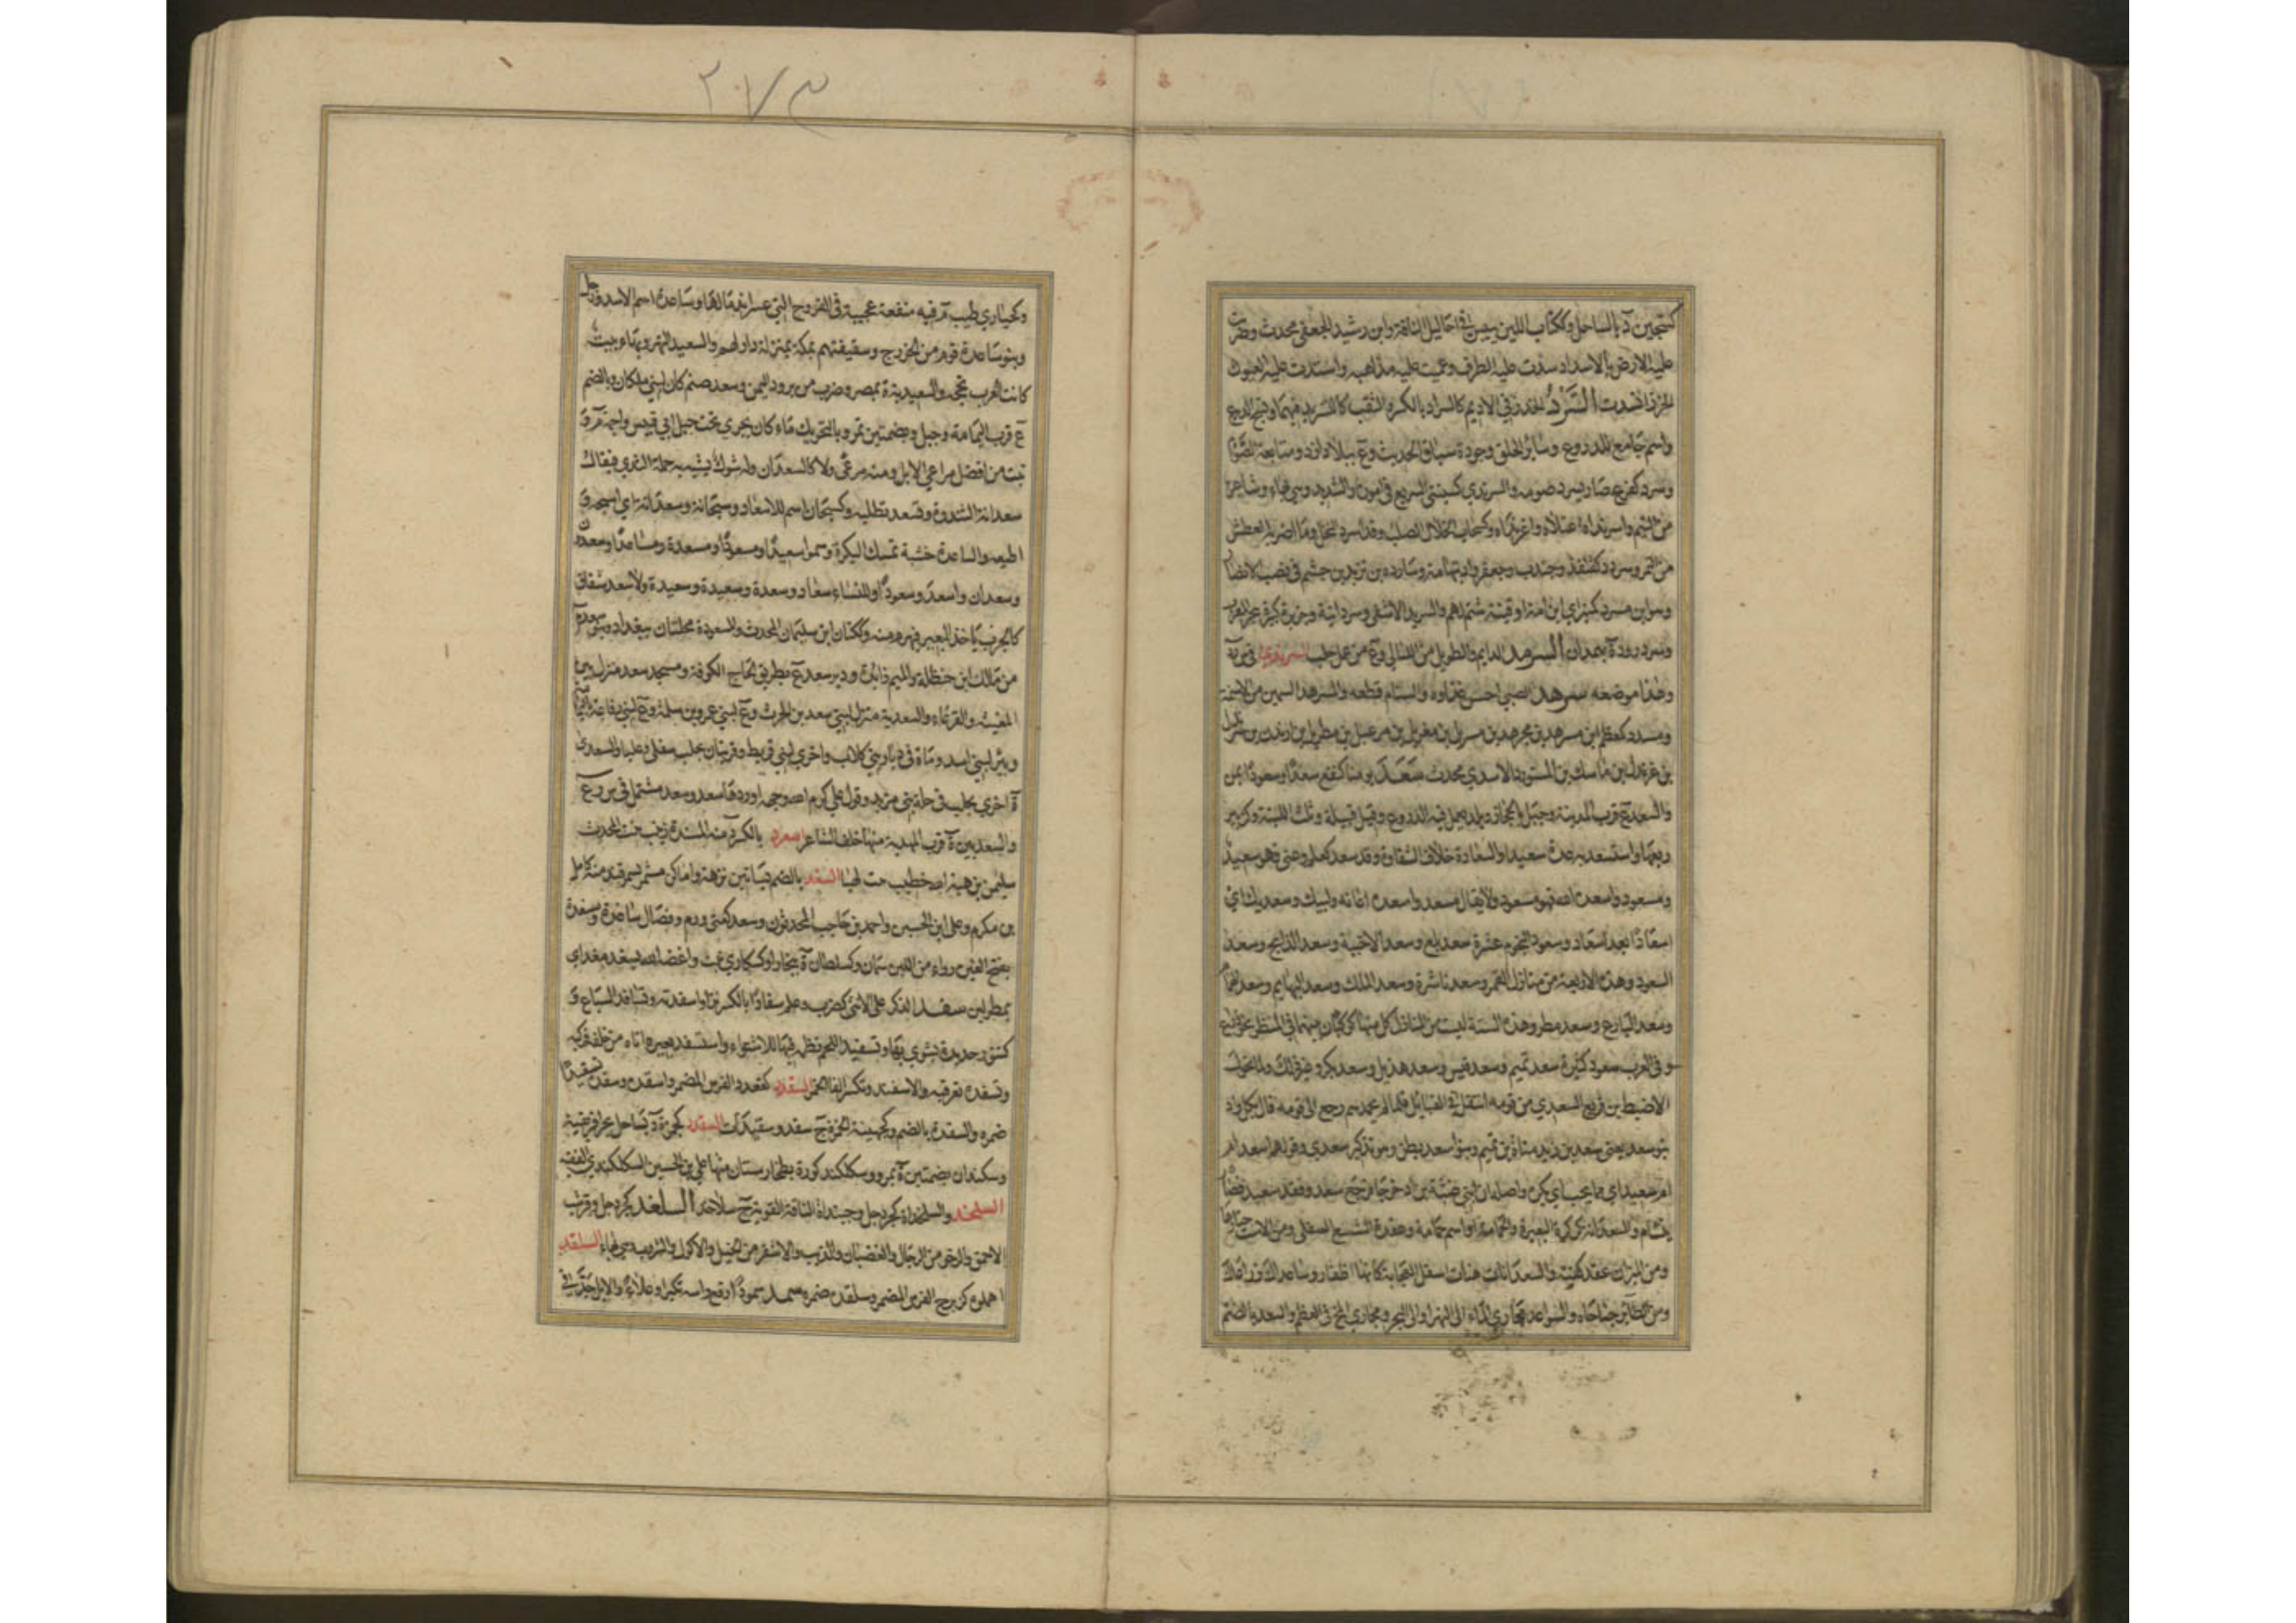 كسجين د بالساحل وككتاب اللبن ييبس في احاليل الناقة وابن رشيد الجعفي محدث وضربت
عليه الارض بالاسداد سدت عليه الطرق وعميت عليه مذاهبه واستدت عيون
الخرز انسدت السرد الخرز في الاديم كالسراد بالكسر والثقب كالتسريد فيهما ونسج الدرع
واسم جامع للدروع وسائر الحلق وجودة سياق الحديث وع ببلاد ازد ومتابعة الصوم
وسرد كفرح صار يسرد صومه والسرندى كسبنتى السريع في اموره والشديد وهي بهاء وشاعر
من التيم واسرنداه اعتلاه واغرنداه وكسحاب الخلال الصلب وقد اسرد النخل وما اضر به العطش
من الثمر وسردد كقنفذ وجندب وجعفر واد بتهامة وسارده بن تزيد بن جشم في نسب الانصار
وهو ابن مسرد كمنبر اي ابن امة او قينة شتم لهم والسريد الاشفى وسردانية جزيرة كبيرة ببحر المغرب
وسردرود ة بهمدان السرمد الدايم والطويل من الليالي وع من عمل حلب السرندي في س ر د
وهذا موضعه سرهد الصبي احسن غذاءه والسنام قطعه والسرهد السمين من الاسنمة
ومسدد كمعظم ابن مسرهد بن مجرهد بن مسربل بن مغربل بن مرعبل بن مطربل بن ارندل بن سرندل
بن عرندل بن ماسك بن المستورد الاسدي محدث سعد يومنا كنفع سعدا وسعودا يمن
والسعد ع قرب المدينة وجبل بالحجاز ود يعمل فيه الدروع وقيل قبيلة وثلث اللبنة وكزبير
ربعها واستسعد به عده سعيدا والسعادة خلاف الشقاوة وقد سعد كعلم وعنى فهو سعيد
ومسعود واسعده الله فهو مسعود ولا يقال مسعد واسعده اعانه ولبيك وسعديك اي
اسعادا بعد اسعاد وسعود النجوم عشرة سعد بلع وسعد الاخبية وسعد الذابح وسعد
السعود وهذه الاربعة من منازل القمر وسعد ناشرة وسعد الملك وسعد البهايم وسعد الهمام
وسعد البارع وسعد مطر وهذه الستة ليست من المنازل كل منها كوكبان بينهما في المنظر نحو ذراع
وفي العرب سعود كثيرة سعد تميم وسعد قيس وسعد هذيل وسعد بكر وغير ذلك ولما تحول
الاضبط بن قريع السعدي من قومه انتقل في القبائل فلما لم يحمدهم رجع الى قومه قال بكل واد
بنو سعد يعني سعد بن زيد مناة بن تميم وبنوا سعد بطن وهو تذكير سعدى وقولهم اسعد ام
ام سعيد اي مما يحب اي يكره واصله ان ابني ضبة بن اد خرجا فرجع سعد وفقد سعيد فصار
يتشام به والسعدانة كركرة البعير والحمامة او اسم حمامة وعقدة الشسع السفلى ومن الاست حتارها
ومن الميزان عقد كفته والسعدانات هنات اسفل العجاية كانها اظفار وساعداك ذراعاك
ومن الطائر جناحاه والسواعد مجاري الماء الى النهر او الى البحر ومجاري المخ في العظم والسعد بالضم
وكحبارى طيب م وفيه منفعة عجيبة في القروح التي عسر اندمالها وساعدة اسم الاسد ورجل
وبنو ساعدة قوم من الخزرج وسقيفتهم بمكة بمنزلة دار لهم والسعيد النهر وبهاء بيت
كانت العرب تحجه والسعيدية ة بمصر وضرب من برود اليمن وسعد صنم كان لبني ملكان وبالضم
ع قرب اليمامة وجبل وبضمتين تمر وبالتحريك ماء كان يجري تحت جبل ابي قبيس واجمة م و
نبت من افضل مراعي الابل ومنه مرعى ولا كالسعدان وله شوك يشبه حلمة الثدي فيقال
سعدانة الثندوة وتسعد تطلبه وكسبحان اسم للاسعاد وسبحانه وسعدانه اي اسبحه و
اطيعه والساعدة خشبة تمسك البكرة وسموا سعيدا ومسعودا ومسعدة ومساعدا وسعدون
وسعدان واسعد وسعودا وللنساء سعاد وسعدة وسعيدة والاسعد شقاق
كالجرب ياخذ البعير فيهرم منه وككتان ابن سليمان المحدث والمسعودة محلتان ببغداد وبنو سعدم
من مالك ابن حنظلة والميم زائدة ودير سعد ع وطريق حاج الكوفة ومسجد سعد منزل بين
المغيثة والقرعاء والسعدية منزل لبني سعد بن الحرث وع لبني عمرو بن سلمة وع لبني رفاعة باليمامة
وبئر لبني اسد وماة في ديار بني كلاب واخرى لبني قريط وقريتان بحلب سفلى وعليا والسعدى
ة اخرى بحلب و ع في حلة بني مزيد وقول علي كرم الله وجهه اوردها سعد وسعد مشتمل في ش ر ع
والسعديين ة قرب المهدية منها خلف الشاعر اسعرد بالكسر د منه المسندة زينب بنت المحدث
سليمن بن هبة الله خطيب بيت لهيا السغد بالضم بساتين نزهة واماكن مثمرة بسمرقند منه كامل
بن مكرم وعلي ابن الحسين واحمد بن حاجب المحدثون وسغد كعنى ورم وفصال ساغدة ومسغدة
بفتح الغين رواء من اللبن سمان وكسلطان ة ببخارا وكسكارى نبت واغضى الله سغد مغد اي
بمطر لين سفد الذكر على الانثى كضرب وعلم سفادا بالكسر نزا واسفدته وتسافد السباع و
كتنور حديدة يشوى بها وتسفيد اللحم نظمه فيها للاشتواء واستسفد بعيره اتاه من خلفه فركبه
وتسفده تعرقبه والاسفند وتكسر الفا الخمر السقدد كقعدد الفرس المضمر واسقده وسقده تسقيدا
ضمره والسقدة بالضم وكجهينة الحمرة ج سقد وسقيدات السكدد كجمزة د بساحل بحر افريقية
وسكندان بضمتين ة بمرو وسكلكند كورة بطخارستان منها علي بن الحسين السكلكندي الفقيه
السلخد والسلخداة كجردحل وجبنداة الناقة القوية ج سلاخد السلغد كجردحل وقرشب
الاحمق والرخو من الرجال والغضبان والذيب والاشقر من الخيل والاكول والشروب وهي بهاء السلقد
اهمله كزبرج الفرس المضمر وسلقده ضمره سمد سمودا رفع راسه تكبرا وعلا والابل جدت في
٢٧٣